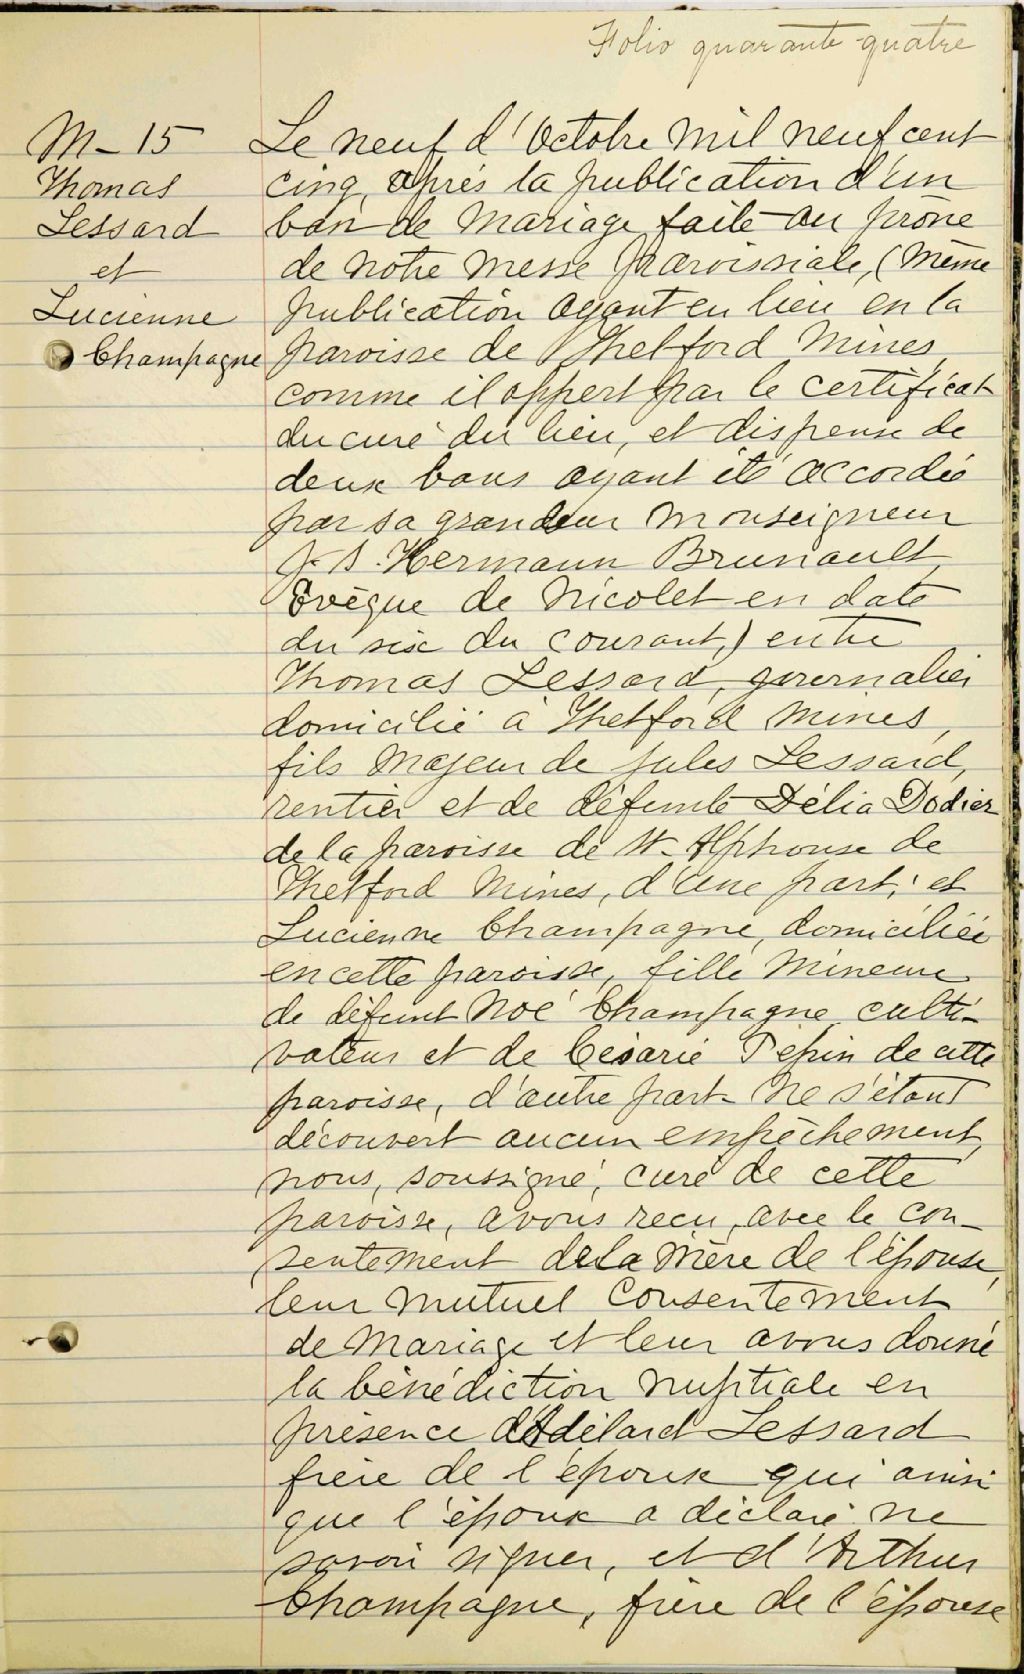 Folio quarante-quatre
M-15
Thomas
Lessard
et
Lucienne
Champagne
Le neuf d'Octobre mil neuf cent
cinq, après la publication d'un
ban de mariage faite au prône
de notre messe paroissiale, (même
publication ayant eu lieu en la
paroisse de Thetford Mines,
comme il appert par le certificat
du curé du lieu, et dispense de
deux bans ayant été accordée
par sa grandeur Monseigneur
J. S. Hermann Brunault,
Evèque de Nicolet en date
du six du courant,) entre
Thomas Lessard, journalier
domicilié à Thetford Mines,
fils majeur de Jules Lessard,
rentier et de défunte Délia Dodier
de la paroisse de St-Alphonse de
Thetford Mines, d'une part; et
Lucienne Champagne, domiciliée
en cette paroisse, fille mineure
de défunt Noé Champagne culti-
vateur et de Césarie Pépin de cette
paroisse, d'autre part ne s'étant
découvert aucun empêchement,
nous, soussigné, curé de cette
paroisse, avons reçu, avec le con-
sentement de la mère de l'épouse,
leur mutuel consentement
de mariage et leur avons donné
la bénédiction nuptiale en
présence d'Adélard Lessard
frère de l'époux qui ainsi
que l'époux a déclaré ne
savoir signer, et d'Arthur
Champagne, frère de l'épouse